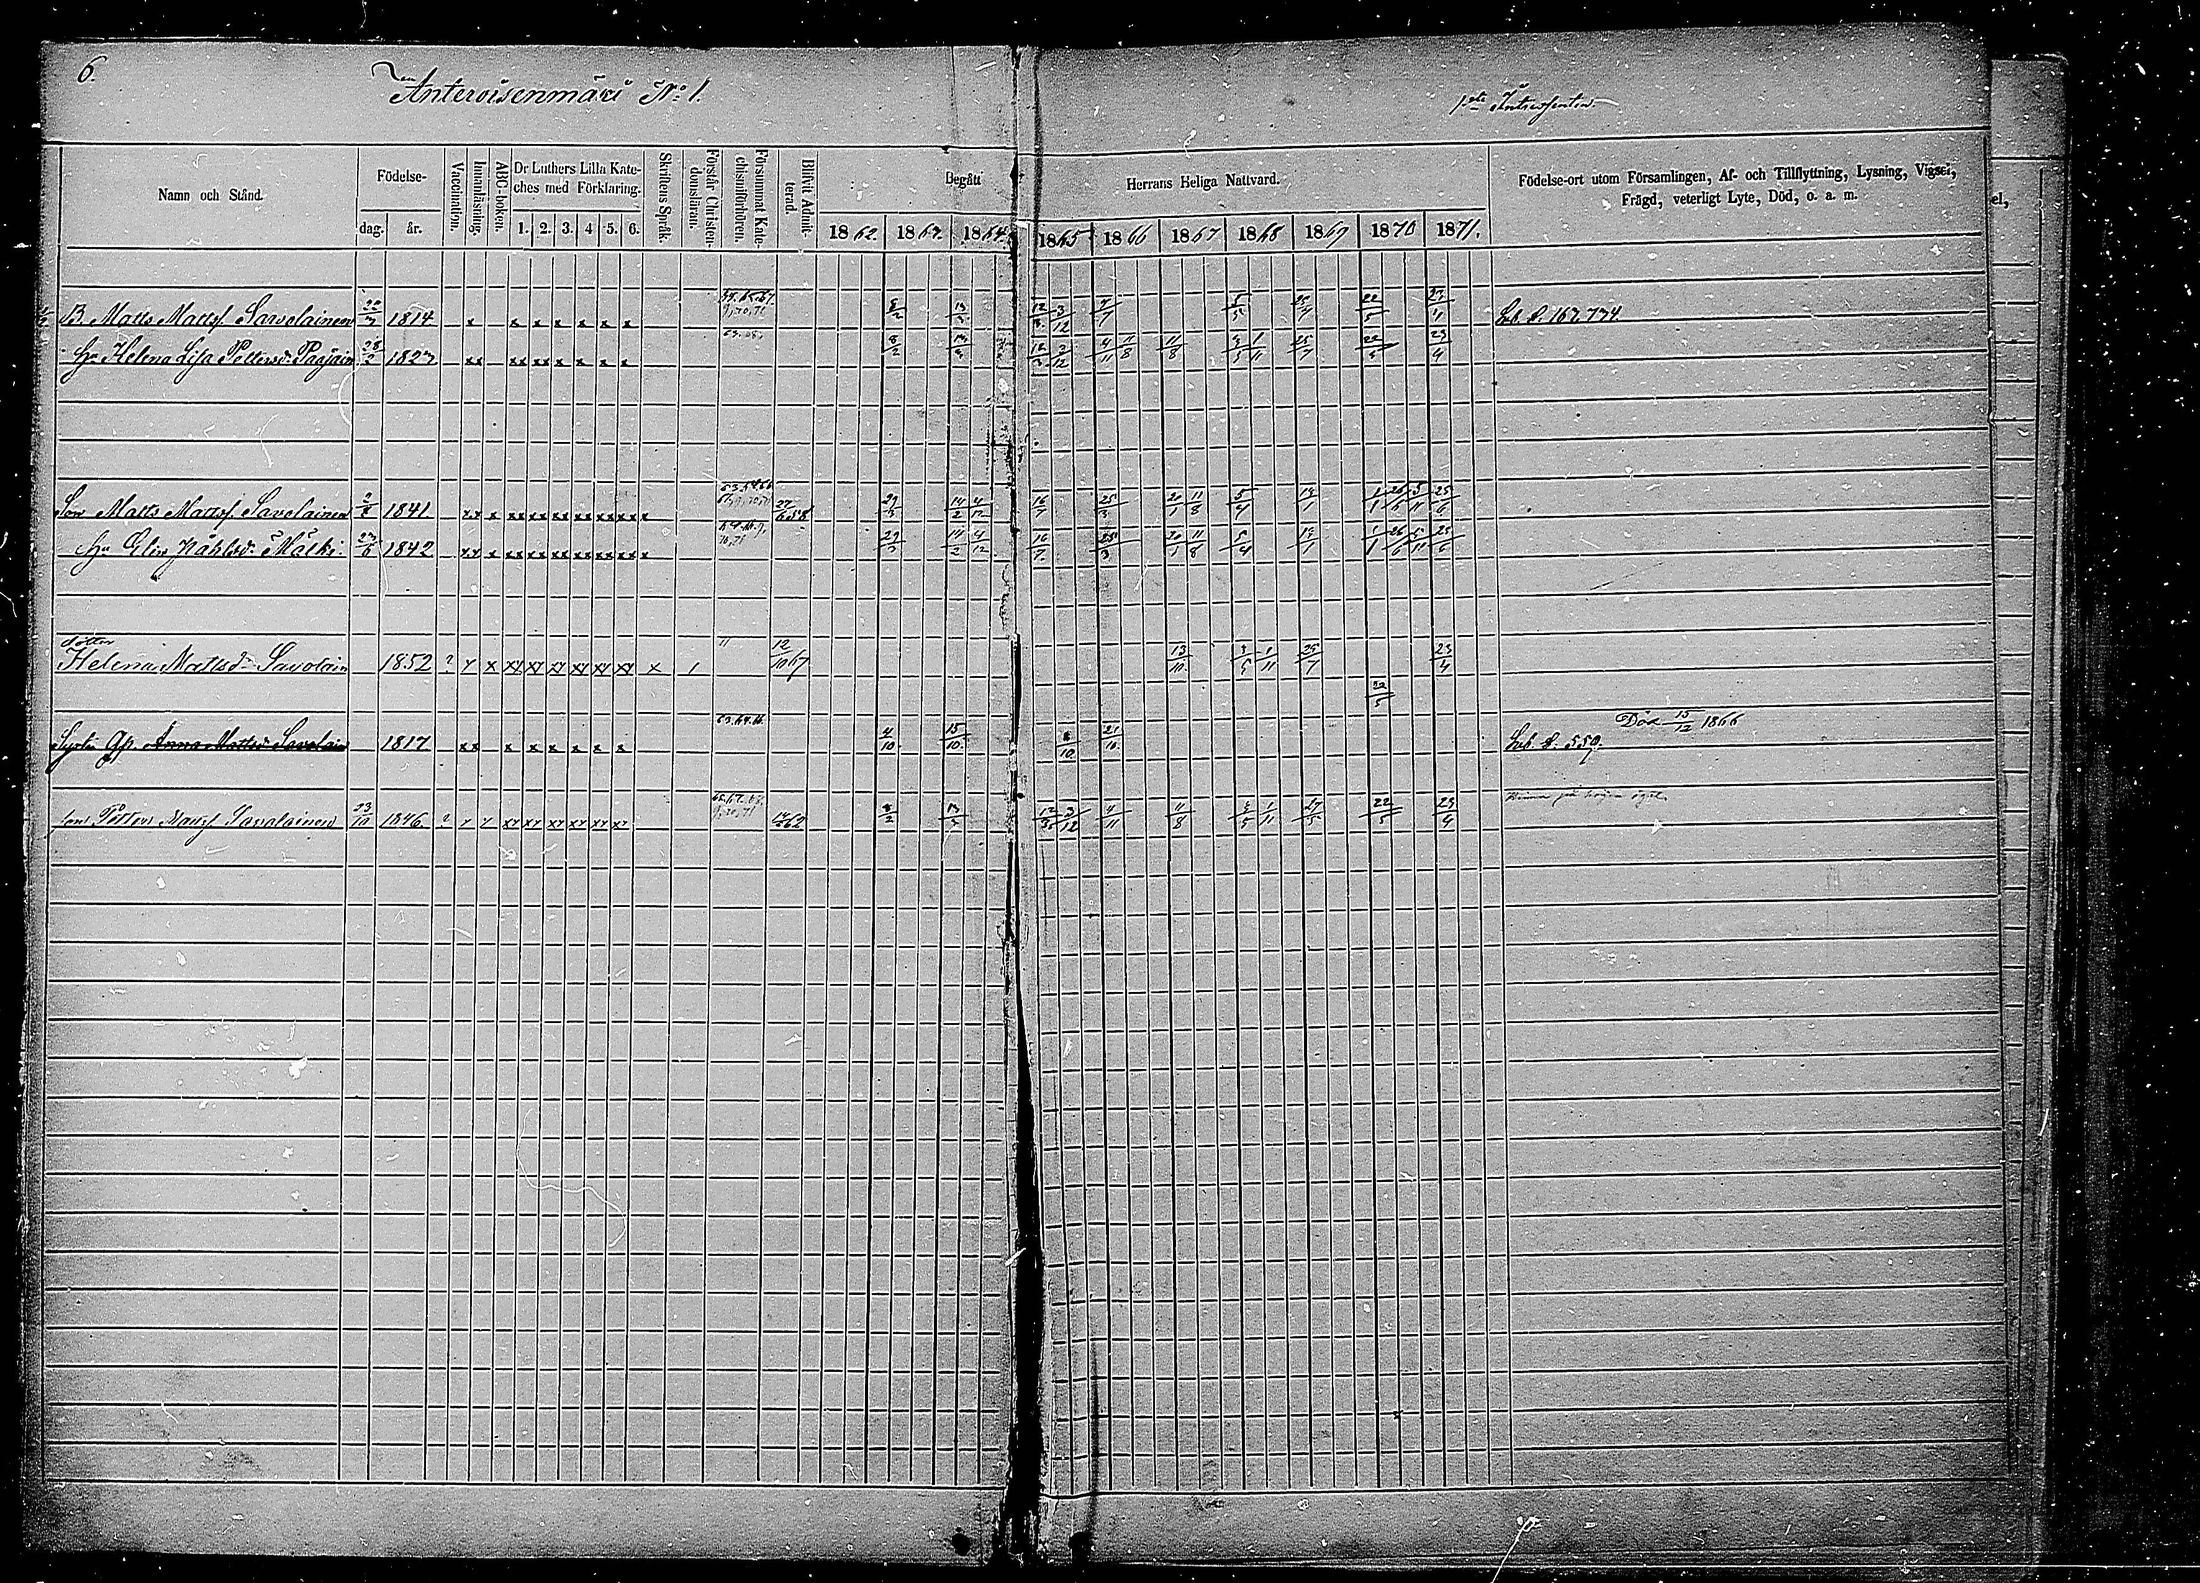 6.
Anteroisenmäki No 1.
1:sta Intressenten.
Namn och Stånd.
Födelse-
dag.
år.
Vaccination.
Innanläsning.
ABC-boken.
Dr Luthers Lilla Kate-
ches med Förklaring.
1. 2. 3. 4 5. 6.
Skriftens Språk.
Förstår Christen-
domsläran.
Försummat Kate-
chismiförhören.
Blifvit Admit-
terad.
Begått
Herrans Heliga Nattvard.
1862. 1863. 1864. 1865 1866 1867 1868 1869 1870 1871.
Födelse-ort utom Församlingen, Af- och Tillflyttning, Lysning, Vigsel,
Frägd, veterligt Lyte, Död, o. a. m.
el,
B. Matts Mattss. Savolainen 22/3 1814 x x x x x x x 8/2 13/3 12/3 3/12 4/7 5/5 25/7 22/5 23/4 Lb. s. 167.774
hu Helena Lisa Pettersd. 28/2 1823 xx xx xx x x x x 8/2 13/3 12/3 3/12 4/11 11/8 11/8 3/5 1/11 25/7 22/5 23/4
Son Matts Mattss. Savolainen 2/8 1841 xx x xx xx xx xx xx xx x 29/3 14/2 4/12 16/7 25/3 20/1 11/8 5/4 19/1 1/1 26/6 5/11 25/6
hu Elin Påhlsd. Mälki 23/6 1842 xx x xx xx xx xx xx xx x 29/3 14/2 4/12 16/7 25/3 20/1 11/8 5/4 19/1 1/1 26/6 5/11 25/6
dotter
Helena Mattsd. Savolain 1852 ? x x xx xx xx xx xx xx x 1 11 12/10 67 13/10 3/5 1/11 25/7 23/4
22/5
63.64.66 Död 15/12 1866
Anna Mattsd. Savolain 1817 xx x x x x x x 4/10 15/10 21/10 Lb. s. 559.
son Petter Mattss. Savolainen 23/10 1846. ? x x xx xx xx xx xx xx 8/2 13/3 12/3 3/12 4/11 11/8 3/5 1/11 27/5 22/5 23/4